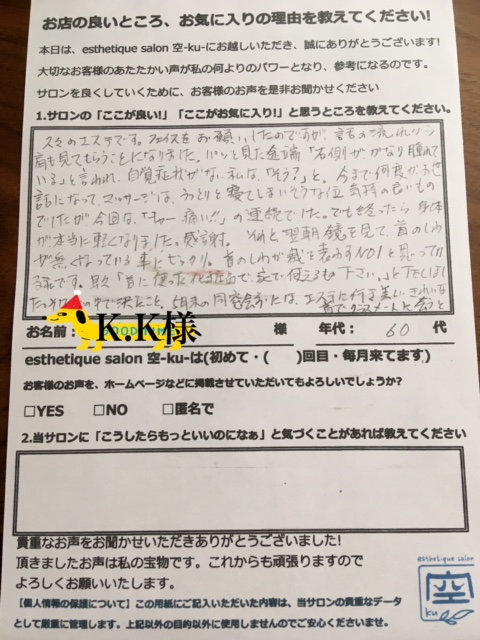 お店の良いところ、お気に入りの理由を教えてください!
本日は、esthetique salon 空-ku-にお越しいただき、誠にありがとうございます!
大切なお客様のあたたかい声が私の何よりのパワーとなり、参考になるのです。
サロンを良くしていくために、お客様のお声を是非お聞かせください
1.サロンの「ここが良い!」「ここがお気に入り!」と思うところを教えてください。
久々のエステです。フェイスをお願いしたのですが、会話の流れから
肩も見てもらうことになりました。パッと見た途端「右側がかなり腫れて
いる」と言われ、自覚症状がない私は、「そう?」と。今まで何度かお世
話になってマッサージは、うっとりと寝てしまいそうな位気持の良いもの
でしたが今回は、「ギャー痛い!!」の連続でした。でも終ったら身体
が本当に軽くなりました。感謝。そして翌朝鏡を見て、首のしわ
が無くなっている事にびっくり。首のしわが歳を表わすNO1と思ってい
る私です。
お名前: K.K様 様 年代: 60 代
esthetique salon 空-ku-は(初めて・( )回目・毎月来てます)
お客様のお声を、ホームページなどに掲載させていただいてもよろしいでしょうか?
□YES □NO □匿名で
2.当サロンに「こうしたらもっといいのになぁ」と気づくことがあれば教えてください
貴重なお声をお聞かせいただきありがとうございました!
頂きましたお声は私の宝物です。これからも頑張りますので
よろしくお願いいたします。
esthetique salon
空
ku
【個人情報の保護について】この用紙にご記入いただいた内容は、当サロンの貴重なデータ
として厳重に管理します。上記以外の目的以外に使用しませんのでご安心くださいませ。